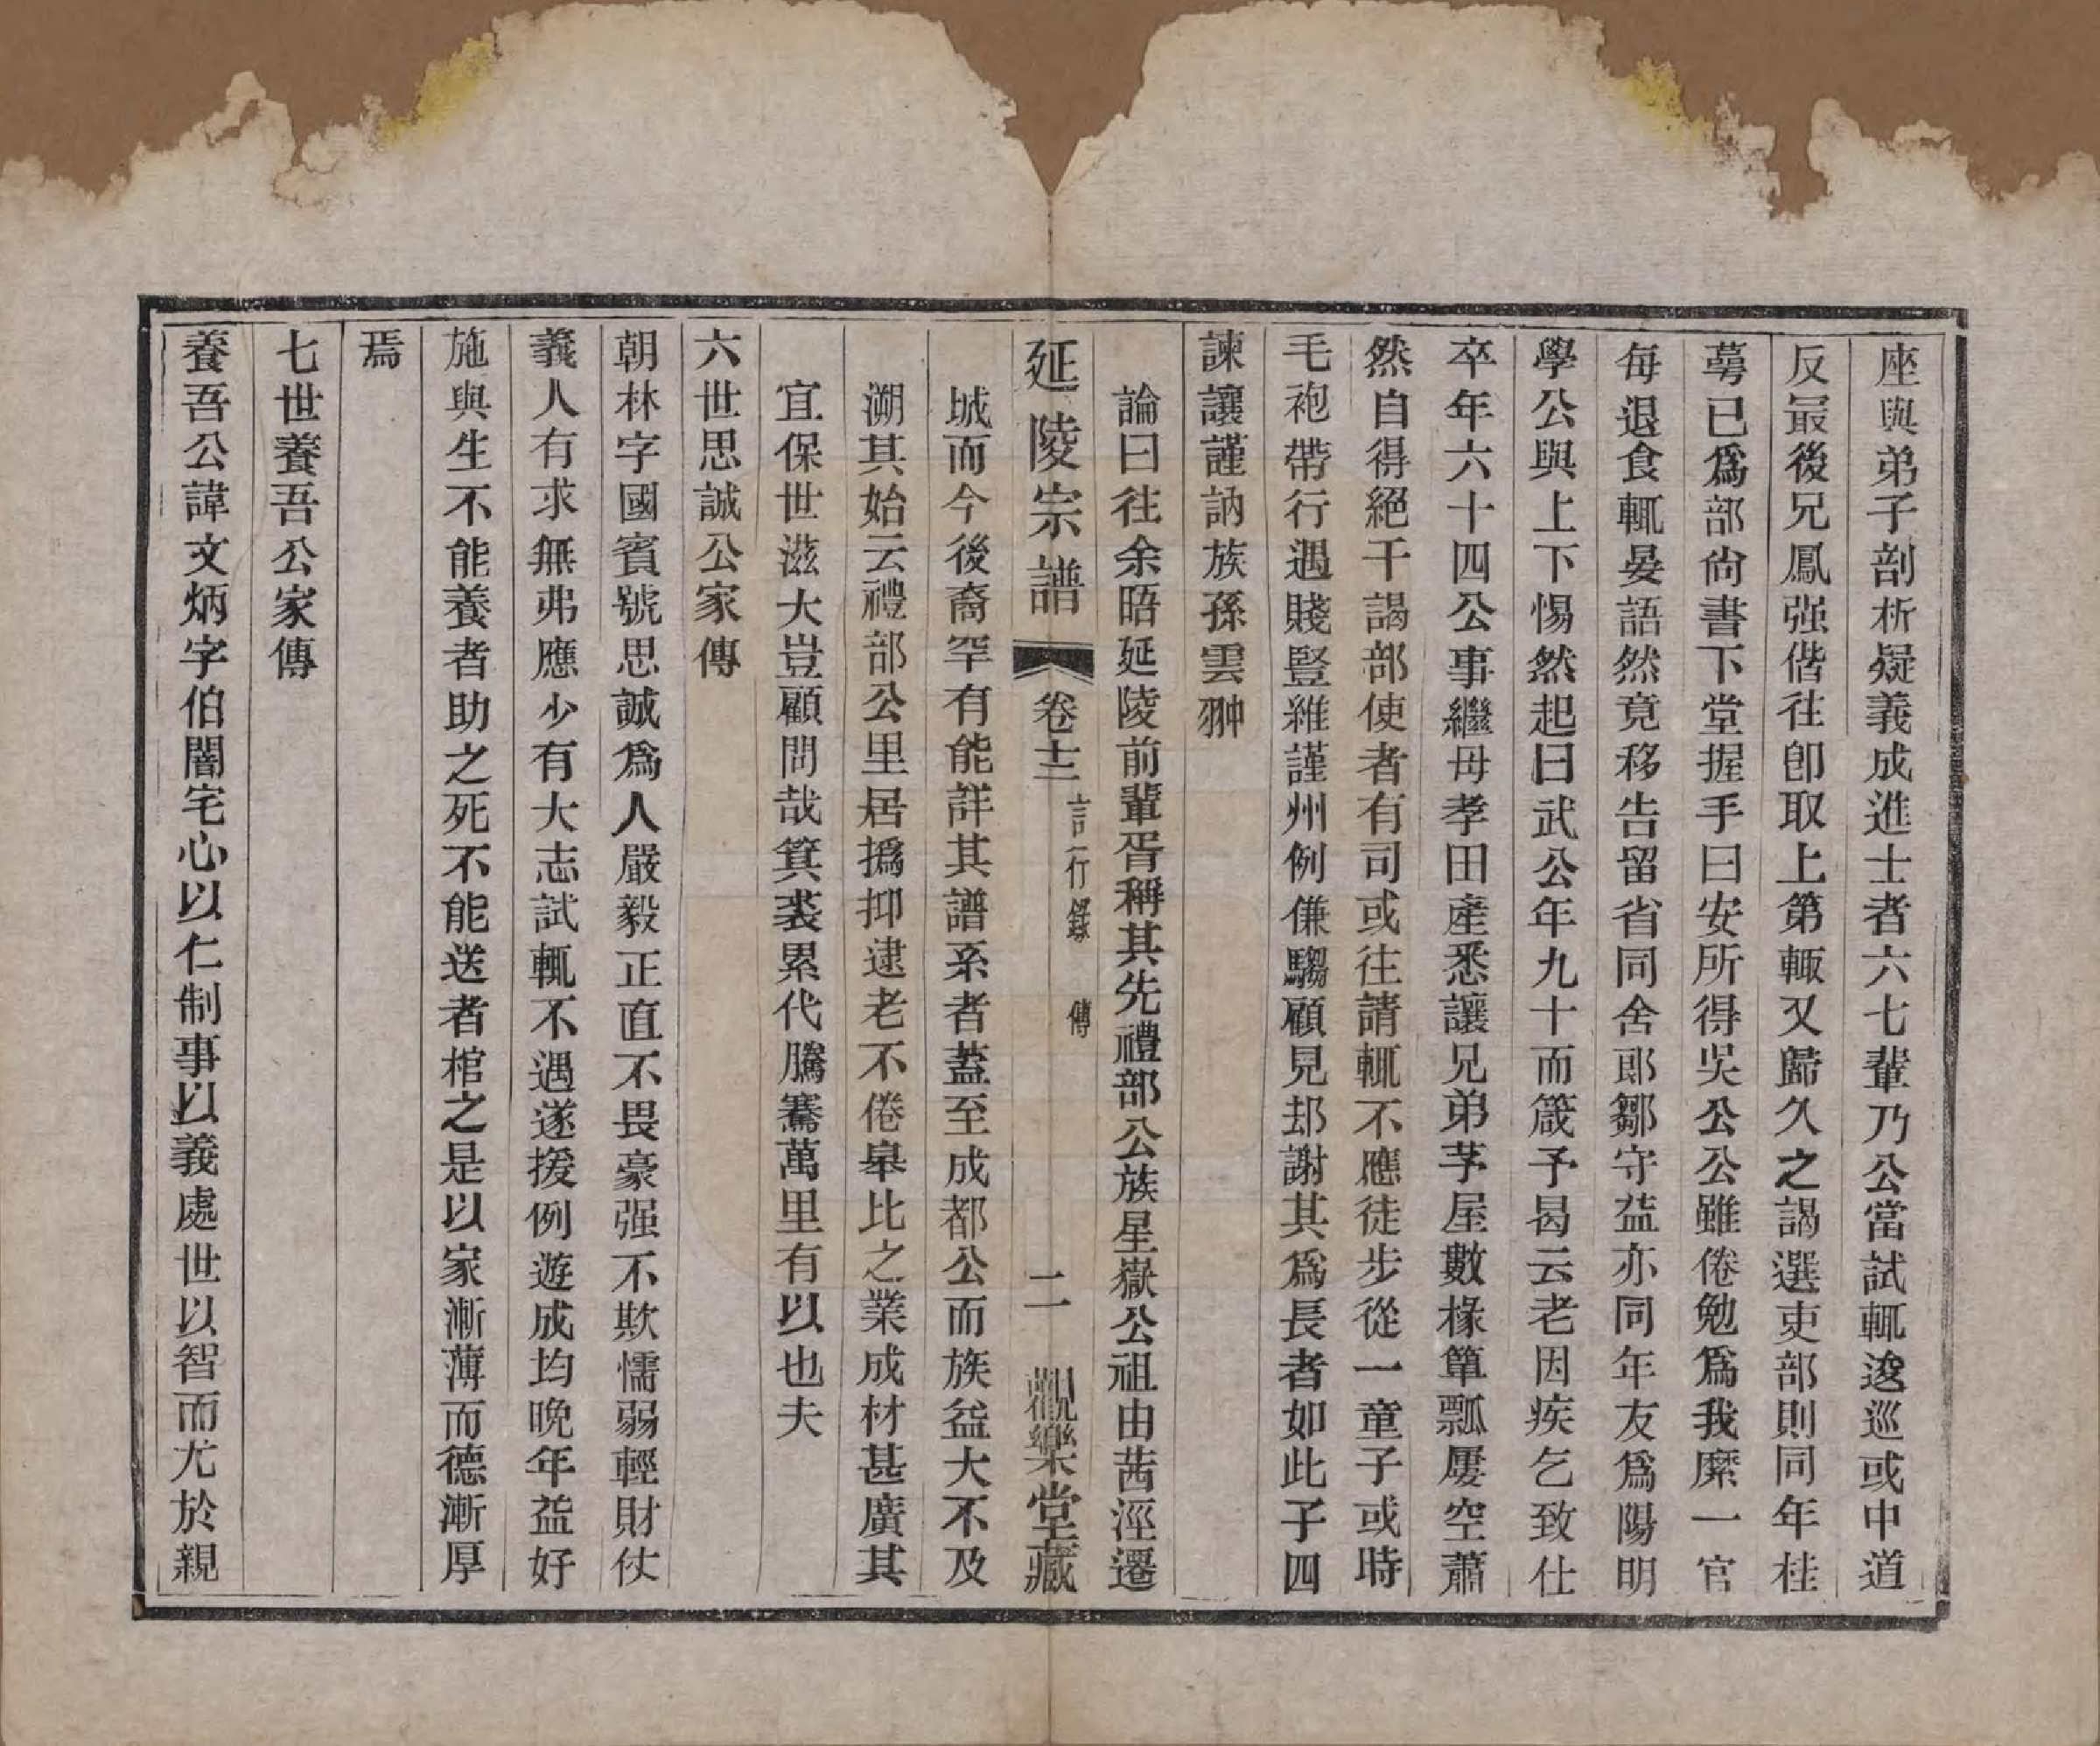 座與弟子剖析疑義成進士者六七輩乃公當試輒逡巡或中道
反最後兄鳳强偕往卽取上第輙又歸久之謁選吏部則同年桂
蕚已爲部尙書下堂握手曰安所得吳公公雖倦勉爲我縻一官
每退食輒晏語然竟移告留省同舍郎鄒守益亦同年友爲陽明
學公與上下惕然起曰武公年九十而箴予曷云老因疾乞致仕
卒年六十四公事繼母孝田產悉讓兄弟茅屋數椽簞瓢屢空蕭
然自得絕干謁部使者有司或往請輒不應徒步從一童子或時
毛袍帶行遇賤豎維謹州例傔騶顧見却謝其爲長者如此子四
諫讓謹訥族孫雲翀
論曰往余晤延陵前輩胥稱其先禮部公族星嶽公祖由茜涇遷
延陵宗譜 卷十三 言行錄 傳 二 觀樂堂藏
城而今後裔罕有能詳其譜系者蓋至成都公而族益大不及
溯其始云禮部公里居撝抑逮老不倦皋比之業成材甚廣其
宜保世滋大豈顧問哉箕裘累代騰騫萬里有以也夫
六世思誠公家傳
朝林字國賓號思誠爲人嚴毅正直不畏豪强不欺懦弱輕財仗
義人有求無弗應少有大志試輒不遇遂援例遊成均晚年益好
施與生不能養者助之死不能送者棺之是以家漸薄而德漸厚
焉
七世養吾公家傳
養吾公諱文炳字伯闇宅心以仁制事以義處世以智而尤於親